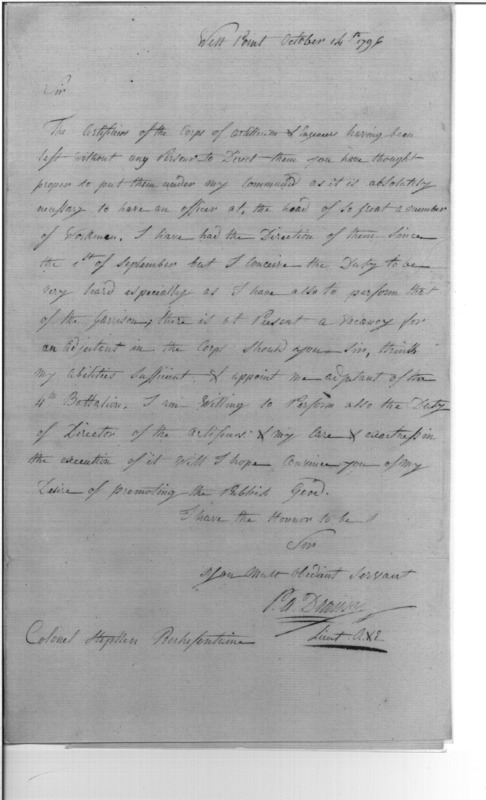 West Point October 14th 1796
Sir
The Artificers of the Corps of Artillerists & Engineers having been
left without any Person to Direct them you have thought
proper to put them under my Command as it is absolutely
necessary to have an officer at, the head of so great a number
of Workmen. I have had the Direction of them Since
the 1st of September but I Conceive the Duty to be
very hard especially as I have also to perform that
of the Garrison, there is at Present a vacancy for
an adjutant in the Corps Should you Sir, think
my abilities Sufficient & appoint me adjutant of the
4th Battalion. I am Willing to Perform also the Duty
of Director of the artificers & my Care & exactness in
the execution of it Will I hope Convince you of my
Desire of promoting the Publick Good.
I have the Honnor to be
Sir
your Most Obediant Servant
P. A. Dransy
Lieut A.&E
Colonel Stephen Rochefontaine